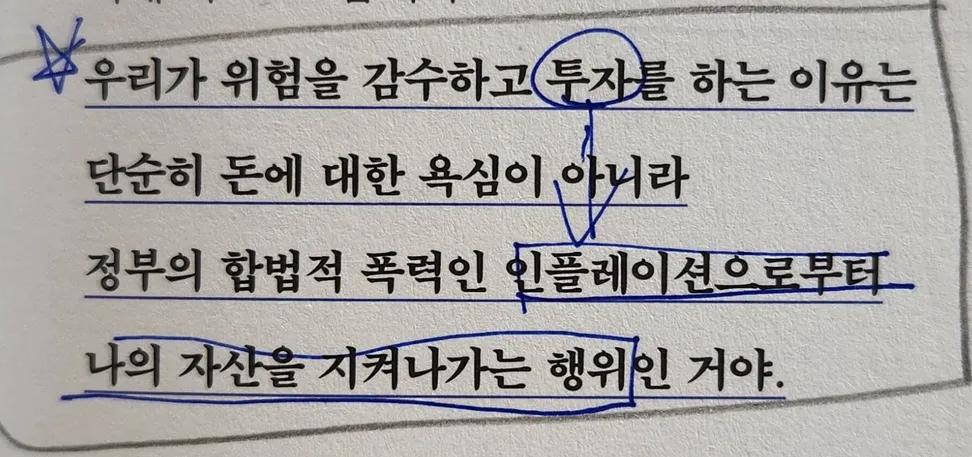 우리가 위험을 감수하고 투자를 하는 이유는
단순히 돈에 대한 욕심이 아니라
정부의 합법적 폭력인 인플레이션으로부터
나의 자산을 지켜나가는 행위인 거야.